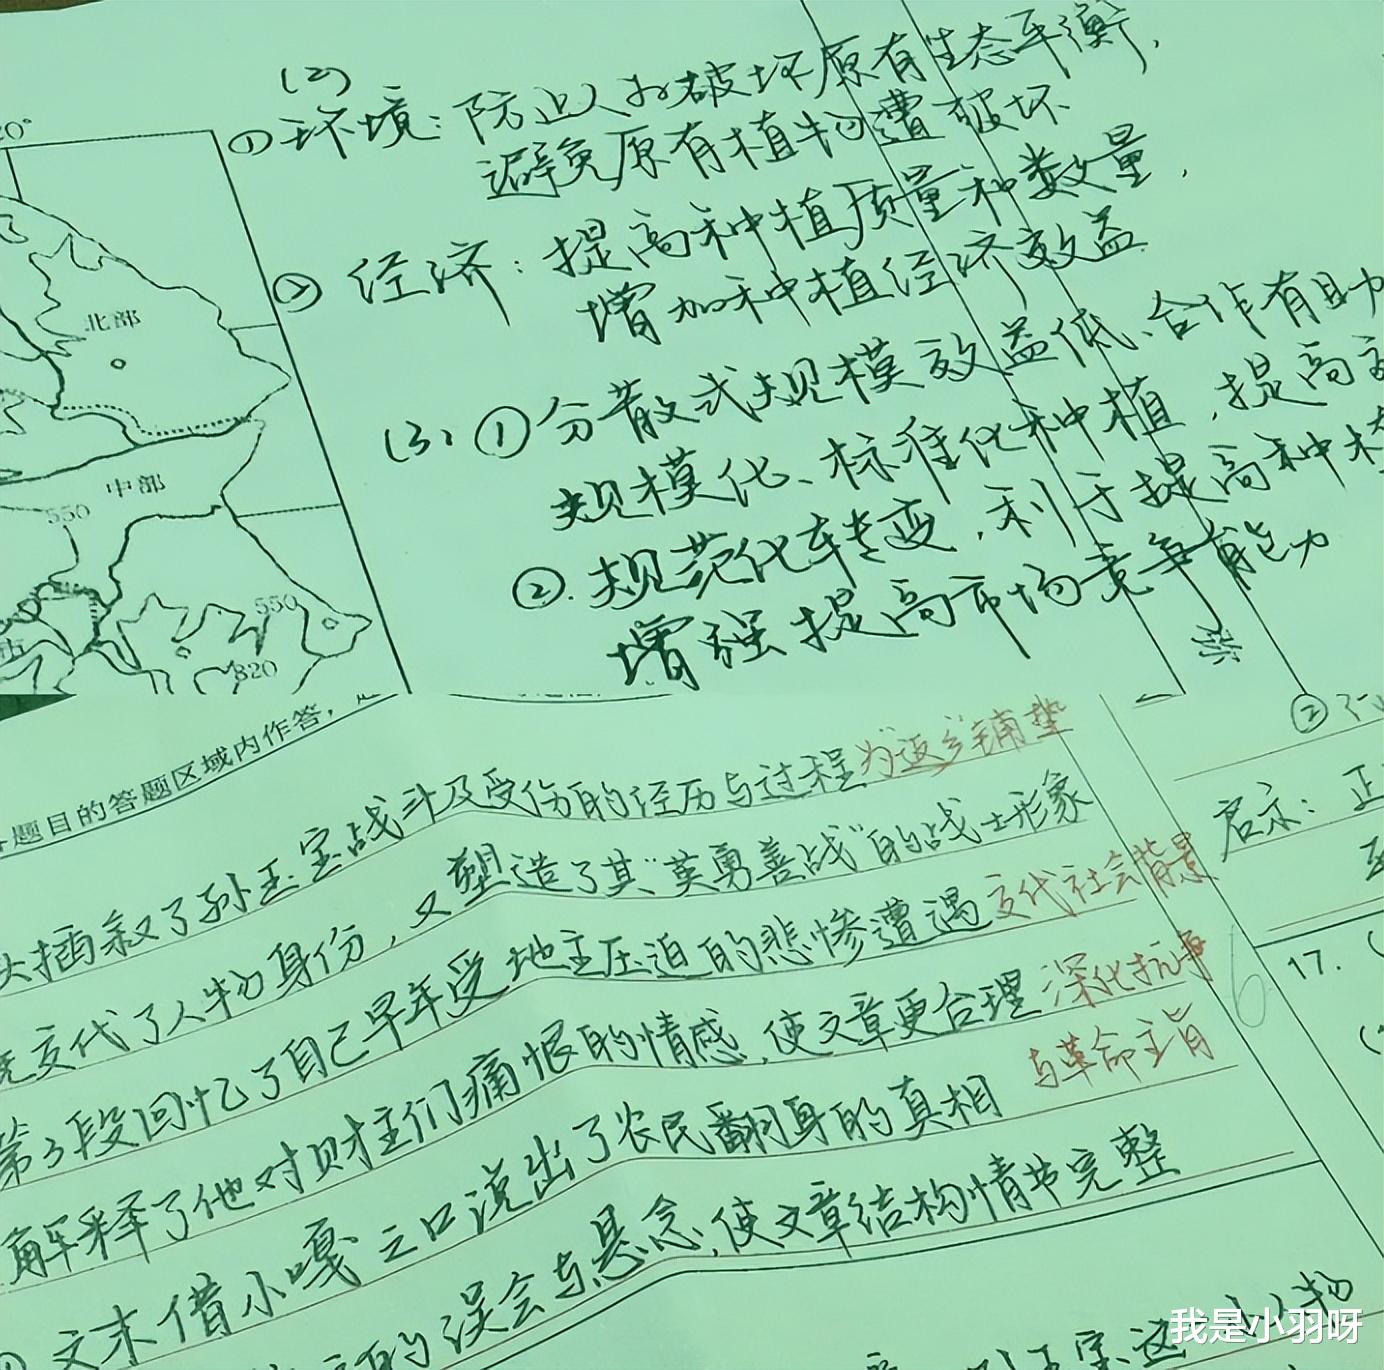 (2)
①环境：防止入侵破坏原有生态平衡，
避免原有植物遭破坏
② 经济：提高种植质量和数量，
增加种植经济效益
(3) ①分散式规模效益低、合作有助
规模化、标准化种植，提高
②.规范化转变，利于提高种植
增强提高市场竞争能力
20°
北部
中部
550
550
820
题目的答题区域内作答，
头插叙了孙玉宝战斗及受伤的经历与过程 为返乡铺垫
交代了人物身份，又塑造了其"英勇善战"的战士形象
第3段回忆了自己早年受地主压迫的悲惨遭遇 交代社会背景
解释了他对财主们痛恨的情感，使文章更合理 深化抗争
与革命主旨
文末借小嘎之口说出了农民翻身的真相
的误会与悬念，使文章结构情节完整
②
启示：正
6
17.
人物
我是小羽呀